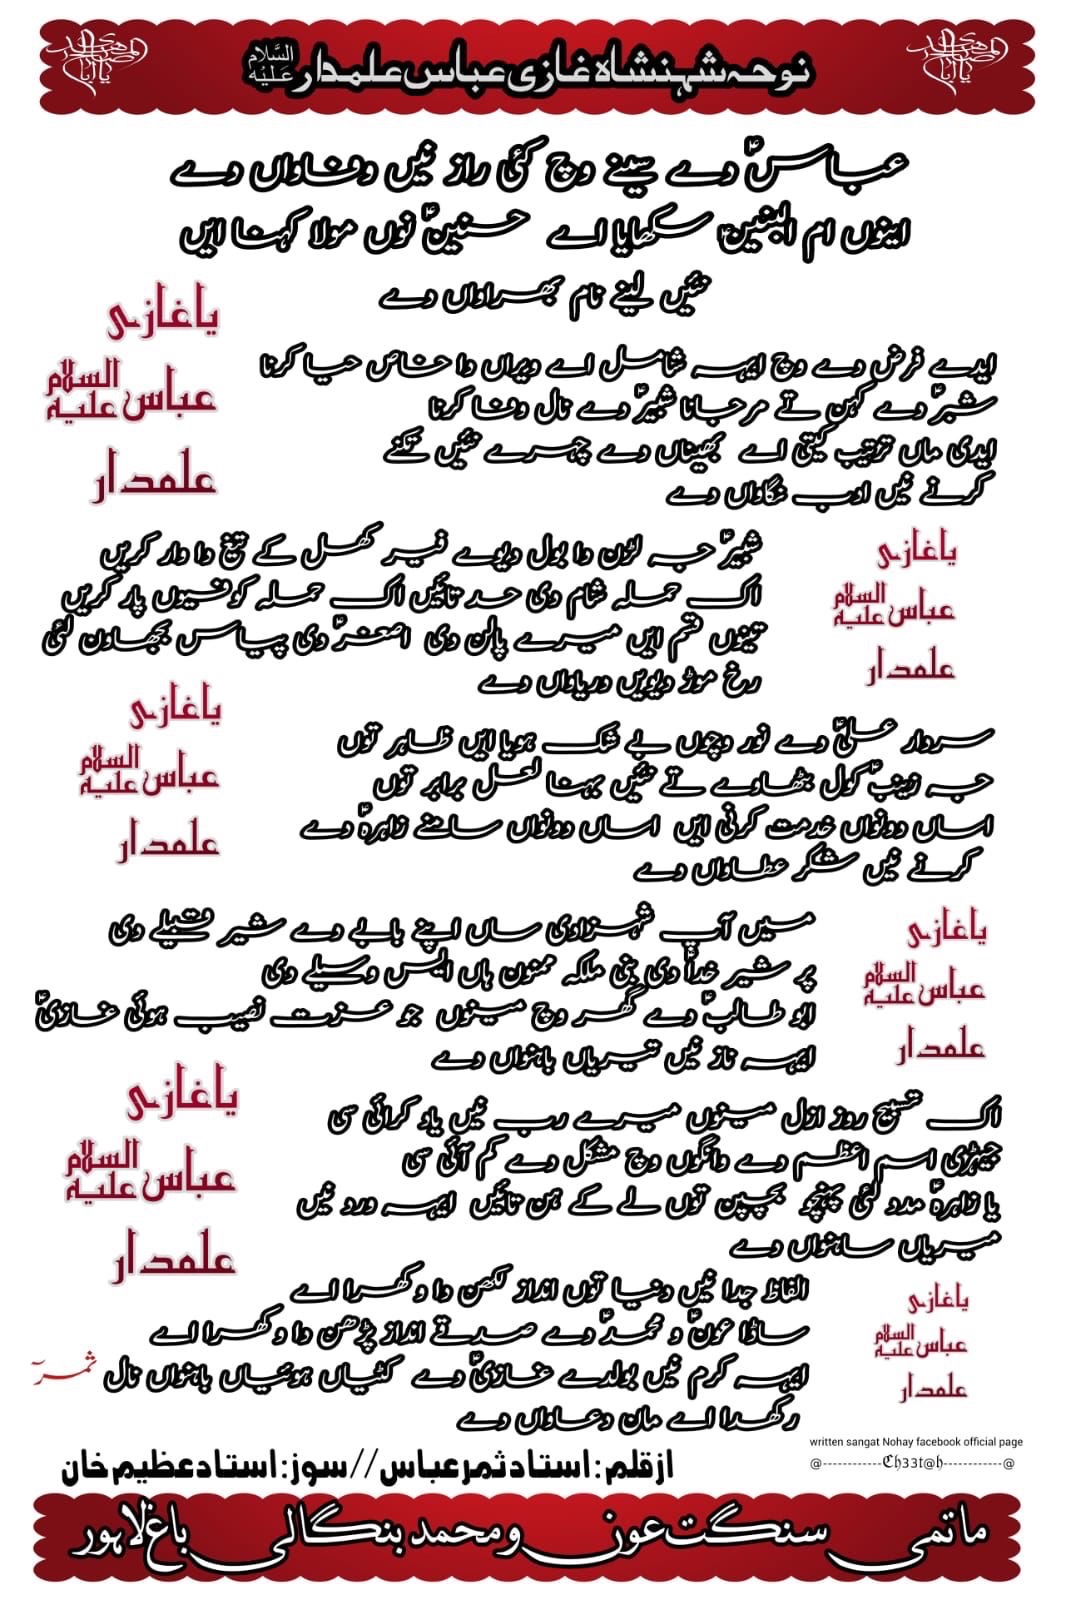 نوحہ شہنشاہ غازی عباس علمدار علیہ السلام
عباسؑ دے سینے وچ کئی راز نیں وفاواں دے
اینوں ام البنینؑ سکھایا اے حسنینؑ نوں مولا کہنا ایں
نئیں لینے نام بھراواں دے
یاغازی
عباس علیہ السلام
علمدار
ایدے فرض دے وچ ایہہ شامل اے ویراں دا خاص حیا کرنا
شبرؑ دے کہن تے مرجانا شبیرؑ دے نال وفا کرنا
ایدی ماں ترتیب کیتی اے بھیناں دے چہرے نئیں تکنے
کرنے نیں ادب نگاواں دے
یاغازی
عباس علیہ السلام
علمدار
شبیرؑ جہ لڑن دا بول دیوے فیر کھل کے تیغ دا وار کریں
اک حملہ شام دی حد تائیں اک حملہ کوفیوں پار کریں
تینوں قسم ایں میرے پالن دی اصغرؑ دی پیاس بجھاون لئی
رخ موڑ دیویں دریاواں دے
یاغازی
عباس علیہ السلام
علمدار
سردار علیؑ دے نور وچوں بے شک ہویا ایں ظاہر توں
جہ زینبؑ کول بٹھاوے تے نئیں بہنا لعل برابر توں
اساں دونواں خدمت کرنی ایں اساں دونواں سامنے زاہرہؑ دے
کرنے نیں شکر عطاواں دے
یاغازی
عباس علیہ السلام
علمدار
میں آپ شہزادی ساں اپنے بابے دے شیر قبیلے دی
پر شیر خداؑ دی بنی ملکہ ممنون ہاں ایس وسیلے دی
ابو طالبؑ دے گھر وچ مینوں جو عزت نصیب ہوئی غازیؑ
ایہہ ناز نیں تیریاں باہنواں دے
یاغازی
عباس علیہ السلام
علمدار
اک تسبیح روز ازل مینوں میرے رب نیں یاد کرائی سی
جیہڑی اسم اعظم دے وانگوں وچ مشکل دے کم آئی سی
یا زاہرہؑ مدد لئی پہنچو بچپن توں لے کے ہن تائیں ایہہ ورد نیں
میریاں ساہنواں دے
یاغازی
عباس علیہ السلام
علمدار
الفاظ جدا نیں دنیا توں انداز لکھن دا وکھرا اے
ساڈا عونؑ و محمدؑ دے صدقے انداز پڑھن دا وکھرا اے
ایہہ کرم نیں بولدے غازیؑ دے کٹیاں ہوئیاں باہنواں نال ثمرؔ
رکھدا اے مان دعاواں دے
written sangat Nohay facebook official page
@-----------Ch33t@h-----------@
ازقلم: استاد ثمر عباس // سوز: استاد عظیم خان
ماتمی سنگت عون و محمد بنگالی باغ لاہور